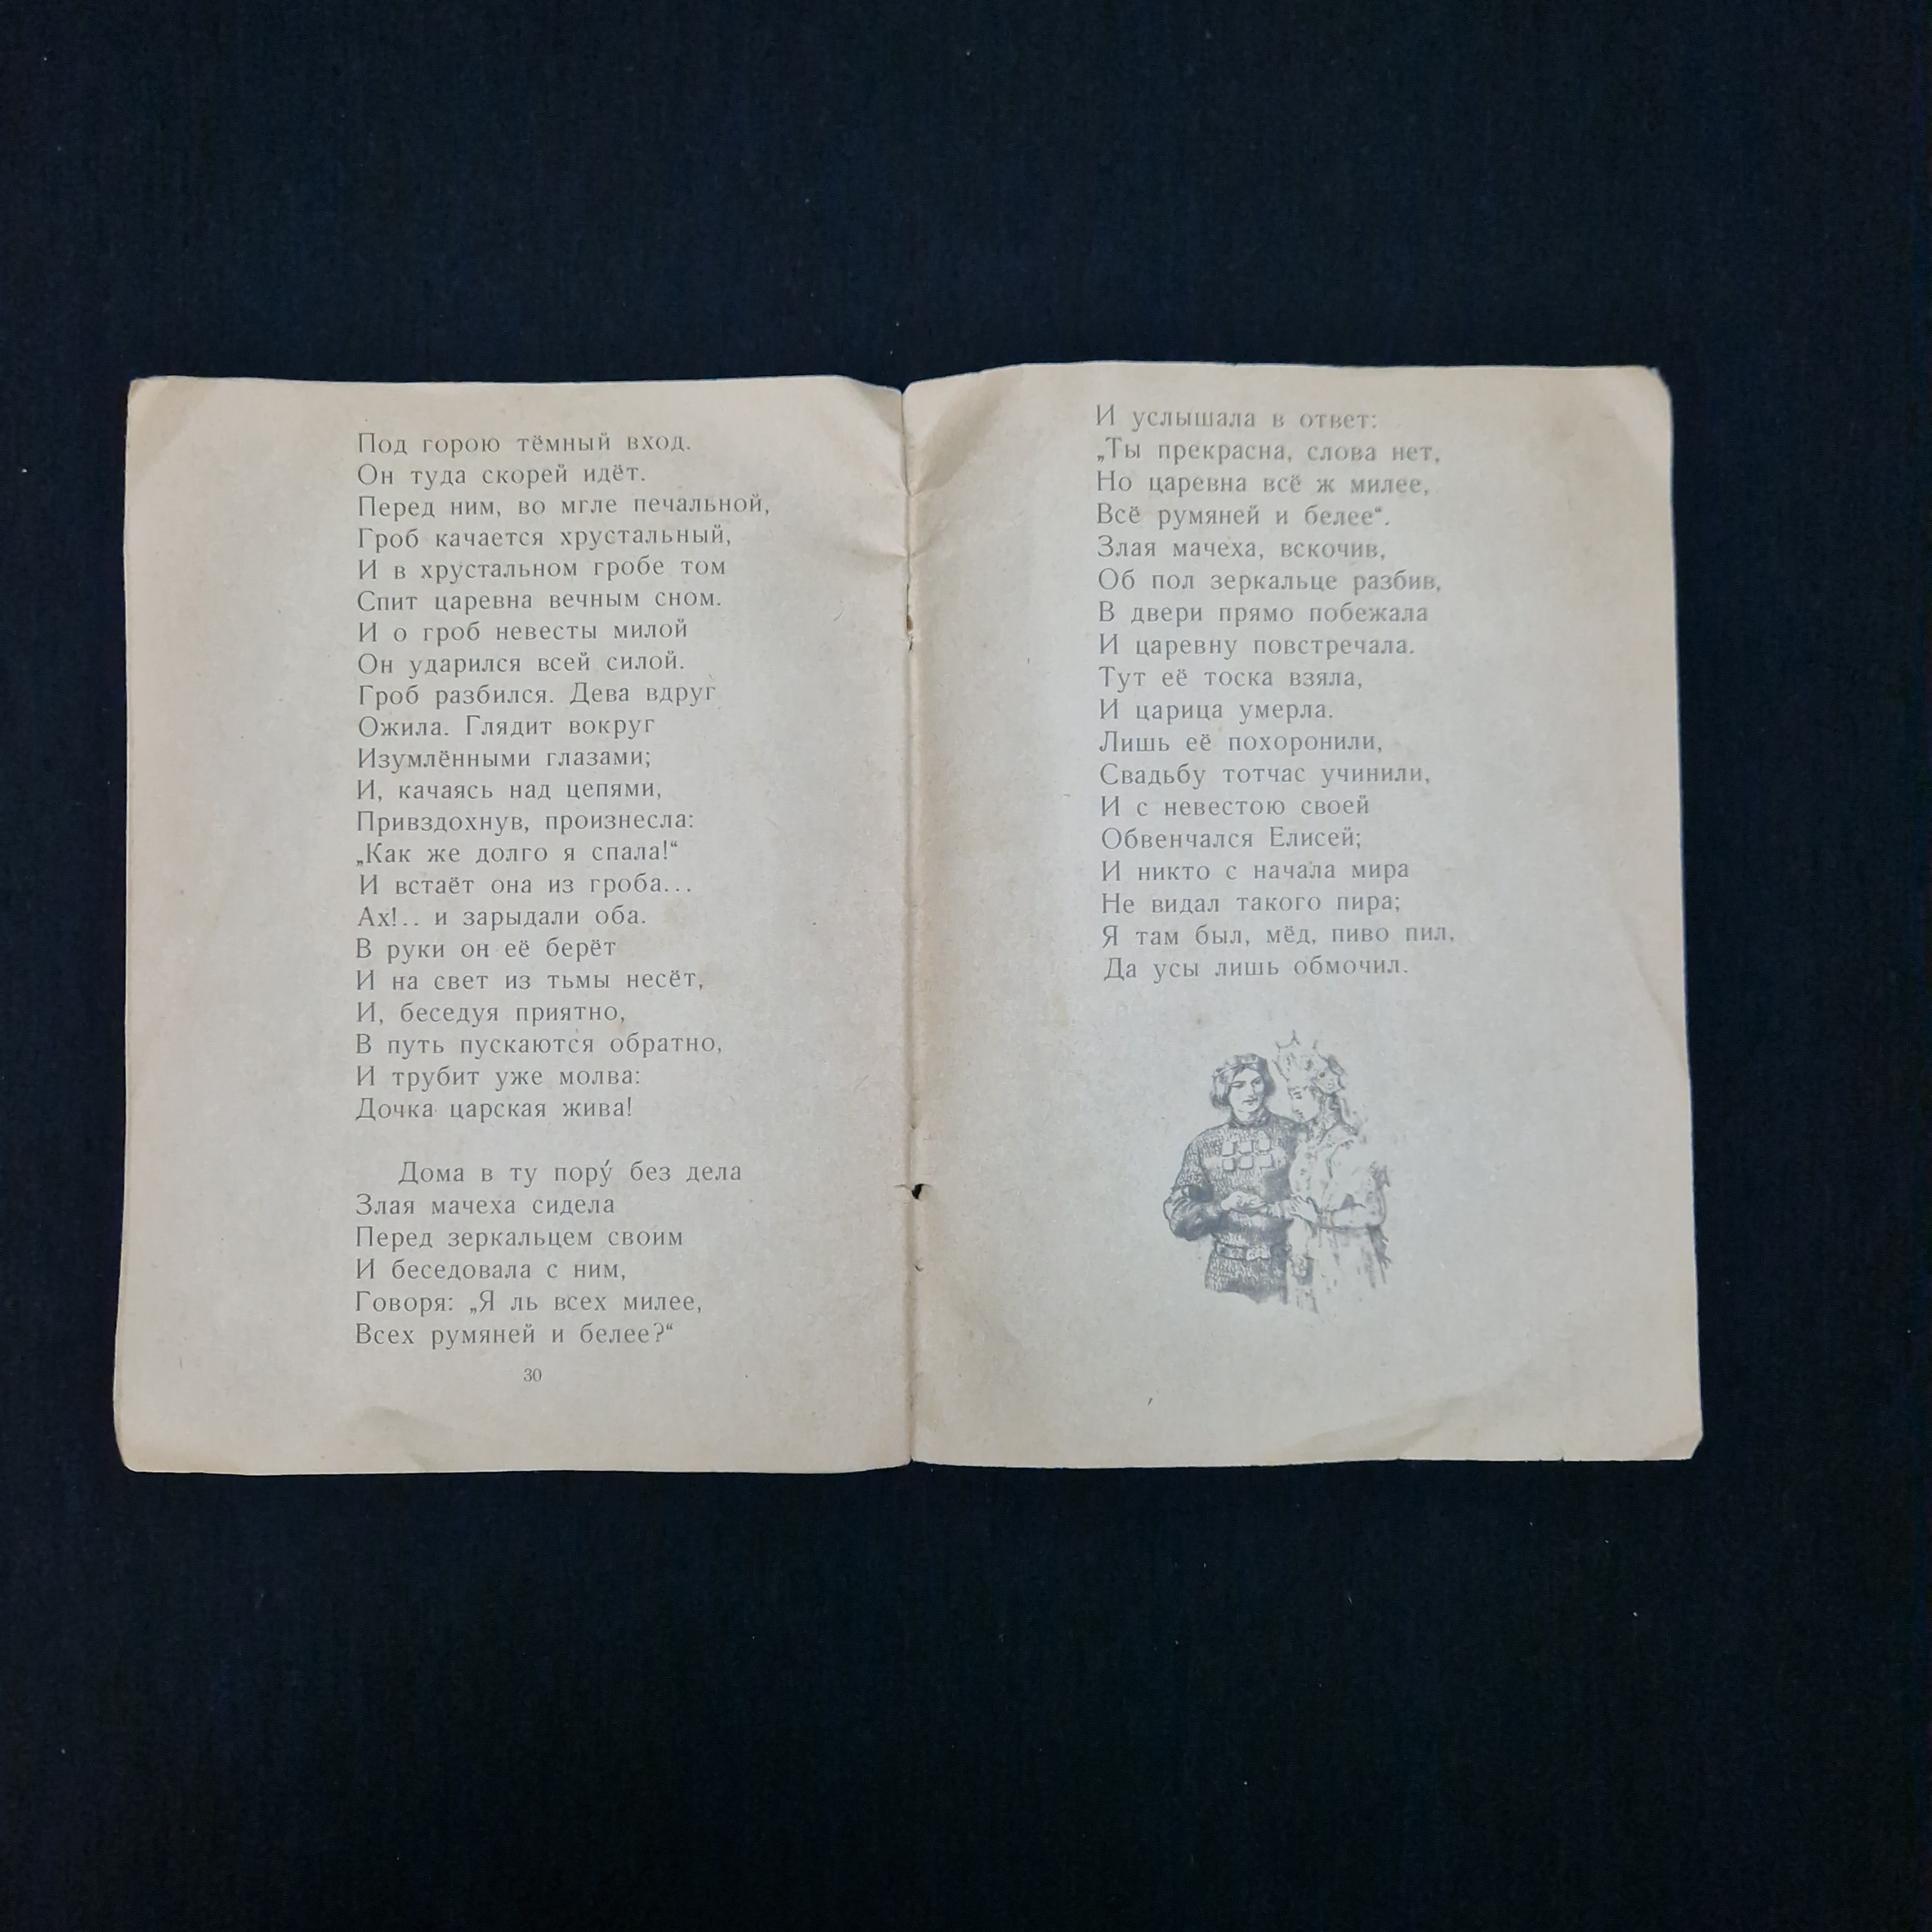 Под горою тёмный вход.
Он туда скорей идёт.
Перед ним, во мгле печальной,
Гроб качается хрустальный,
И в хрустальном гробе том
Спит царевна вечным сном.
И о гроб невесты милой
Он ударился всей силой.
Гроб разбился. Дева вдруг
Ожила. Глядит вокруг
Изумлёнными глазами;
И, качаясь над цепями,
Привздохнув, произнесла:
„Как же долго я спала!“
И встаёт она из гроба...
Ах!.. и зарыдали оба.
В руки он её берёт
И на свет из тьмы несёт,
И, беседуя приятно,
В путь пускаются обратно,
И трубит уже молва:
Дочка царская жива!
Дома в ту пору́ без дела
Злая мачеха сидела
Перед зеркальцем своим
И беседовала с ним,
Говоря: „Я ль всех милее,
Всех румяней и белее?“
30
И услышала в ответ:
„Ты прекрасна, слова нет,
Но царевна всё ж милее,
Всё румяней и белее“.
Злая мачеха, вскочив,
Об пол зеркальце разбив,
В двери прямо побежала
И царевну повстречала.
Тут её тоска взяла,
И царица умерла.
Лишь её похоронили,
Свадьбу тотчас учинили,
И с невестою своей
Обвенчался Елисей;
И никто с начала мира
Не видал такого пира;
Я там был, мёд, пиво пил,
Да усы лишь обмочил.